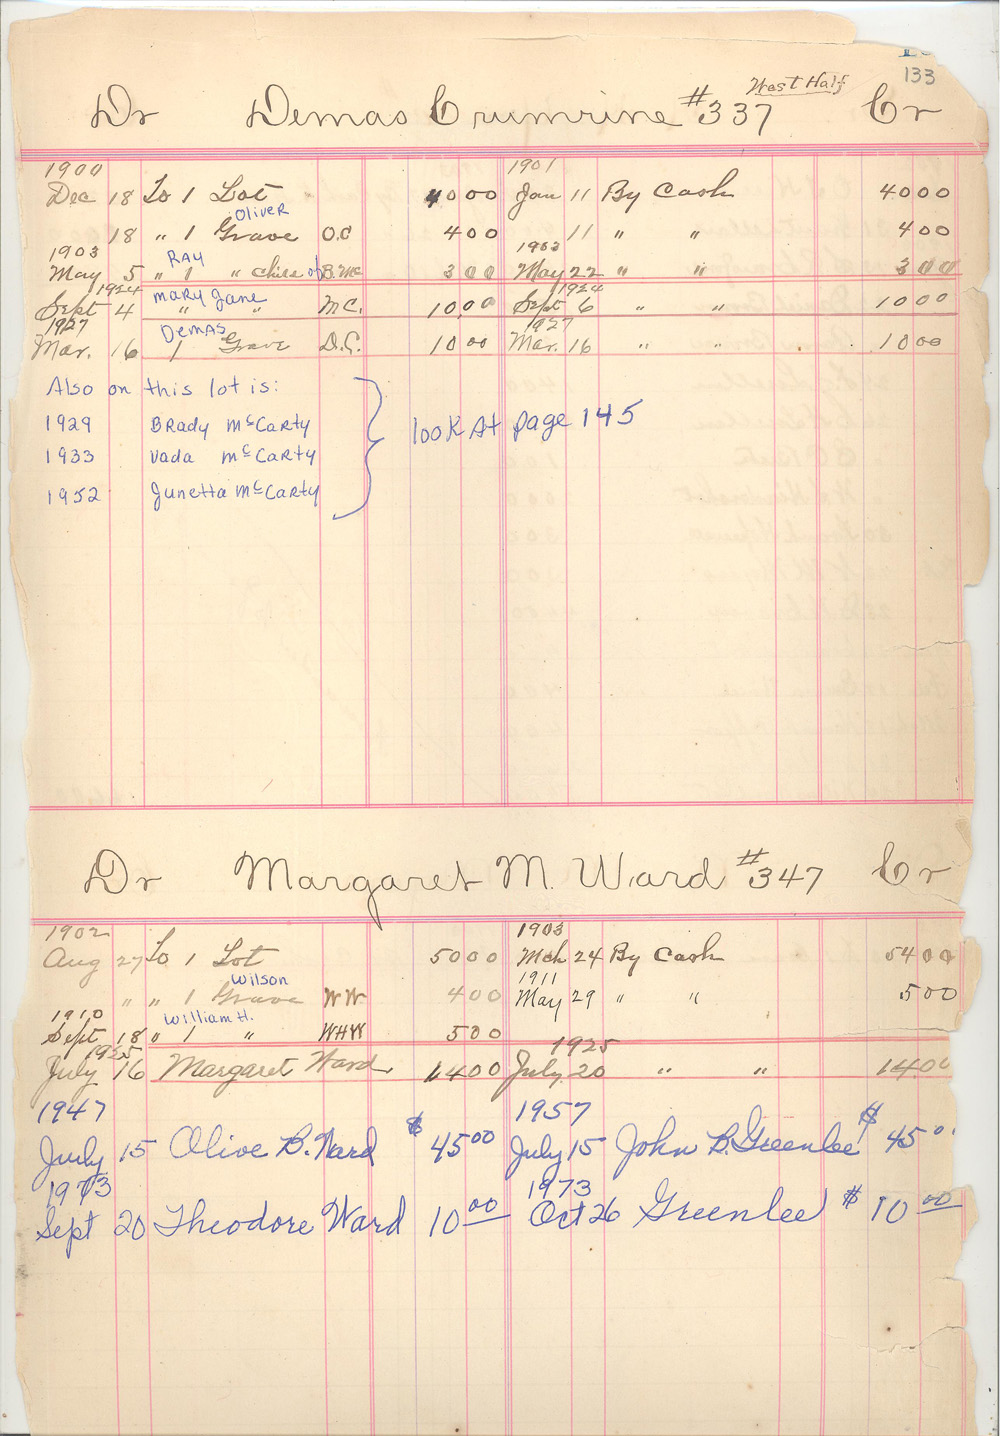 133
West Half
Dr Demas Crumrine #337 Cr
1900 1901
Dec 18 To 1 Lot 40 00 Jan 11 By Cash 40 00
Oliver
18 " 1 Grave O.C 4 00 11 " " 4 00
1903 RAY 1903
May 5 " 1 " child of B. Mc 3 00 May 22 " " 3 00
1924 Mary Jane 1924
Sept 4 " " MC. 10 00 Sept 6 " " 10 00
1927 DEMAS 1927
Mar. 16 1 Grave D.C. 10 00 Mar. 16 " " 10 00
Also on this lot is:
1929 Brady McCarty look At page 145
1933 Vada McCarty
1952 Junetta McCarty
Dr Margaret M. Ward #347 Cr
1902 1903
Aug 27 To 1 Lot 50 00 Mch 24 By Cash 54 00
Wilson 1911
" " 1 Grave WW 4 00 May 29 " " 5 00
1910 William H.
Sept 18 " 1 " WHW 5 00
1925 1925
July 16 Margaret Ward 14 00 July 20 " " 14 00
1947 1957
July 15 Olive B. Ward $ 45 00 July 15 John B. Greenlee $ 45 0
1973 1973
Sept 20 Theodore Ward 10 00 Oct 26 Greenlee $ 10 00